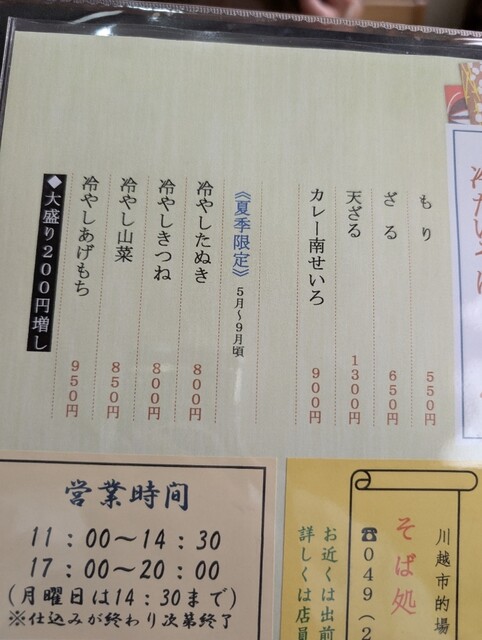 冷たいそば
もり 550円
ざる 650円
天ざる 1300円
カレー南せいろ 900円
《夏季限定》 5月～9月頃
冷やしたぬき 800円
冷やしきつね 800円
冷やし山菜 850円
冷やしあげもち 950円
◆大盛り200円増し
営業時間
11：00～14：30
17：00～20：00
(月曜日は14：30まで)
※仕込みが終わり次第終了
川越市的場
そば処
☎049（2
お近くは出前
詳しくは店員